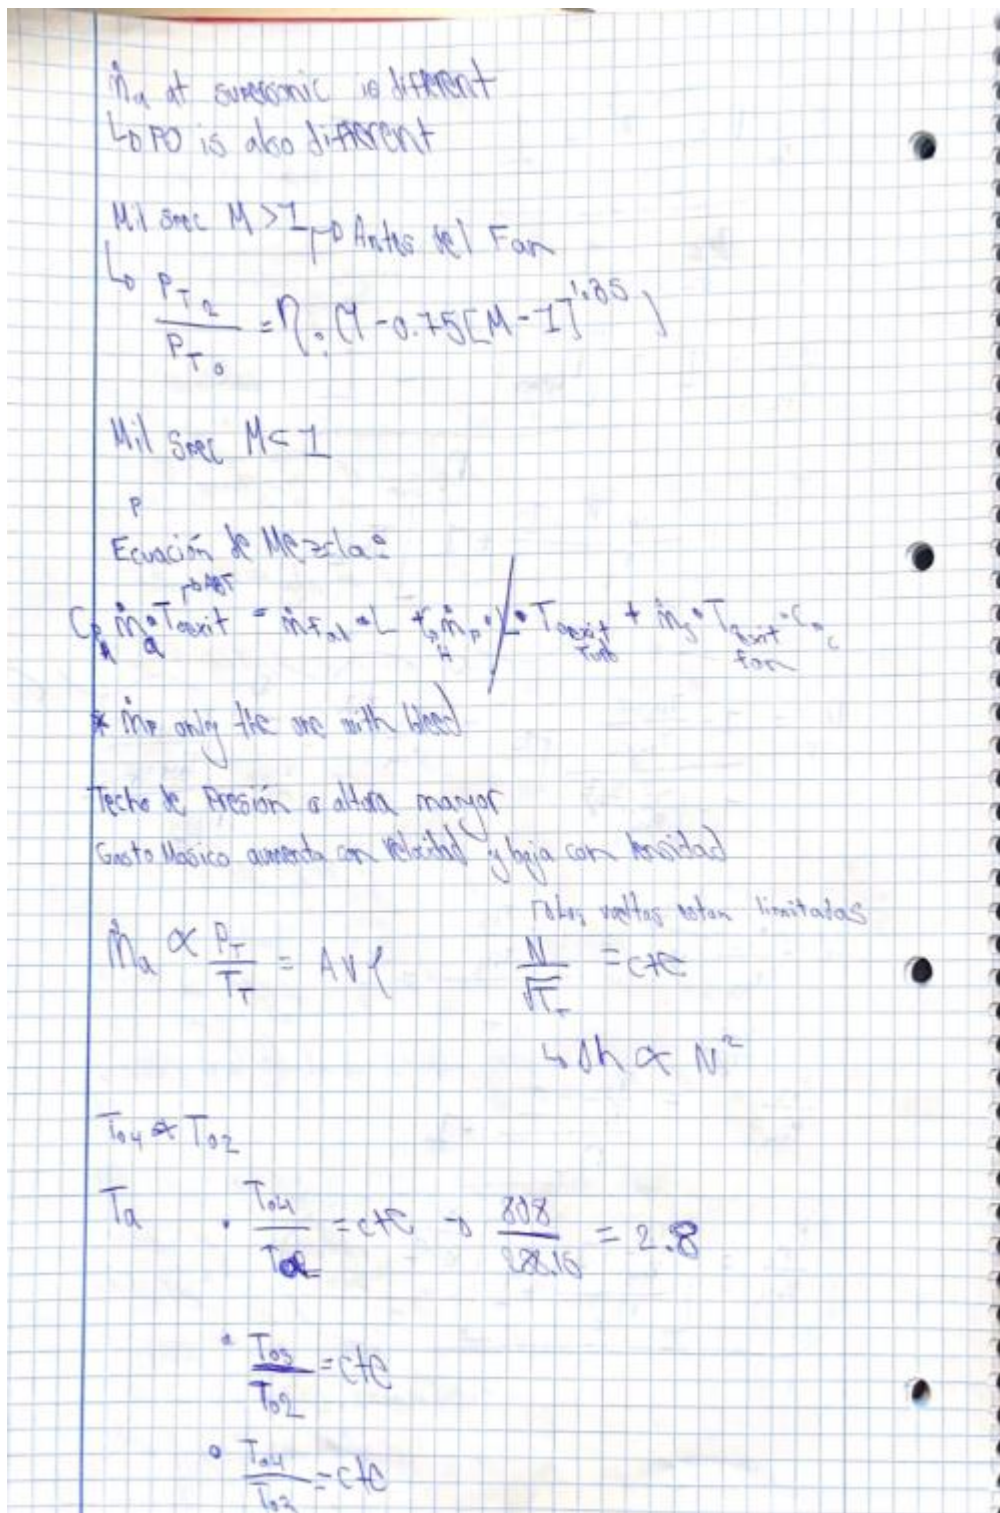 ṁa at supersonic is different
↳ P0 is also different
Mil Spec M > 1 → Antes del Fan
↳ P_T2 / P_T0 = η · (1 - 0.75[M - 1]^1.35)
Mil Spec M < 1
P
Ecuación de Mezcla:
ṁa · T0exit = ṁf · L + ṁp · T0exit Turb + ṁs · T0exit fan · Cp c
* ṁp only the one with bleed
Techo de Presión a altura mayor
Gasto Masico aumenta con velocidad y baja con densidad
→ Las vueltas estan limitadas
ṁa ∝ P_T / T_T = A V ρ
N / √T_T = cte
↳ Δh ∝ N²
T04 ∝ T02
Ta • T04 / T02 = cte → 808 / 288.15 = 2.8
• T03 / T02 = cte
• T04 / T02 = cte